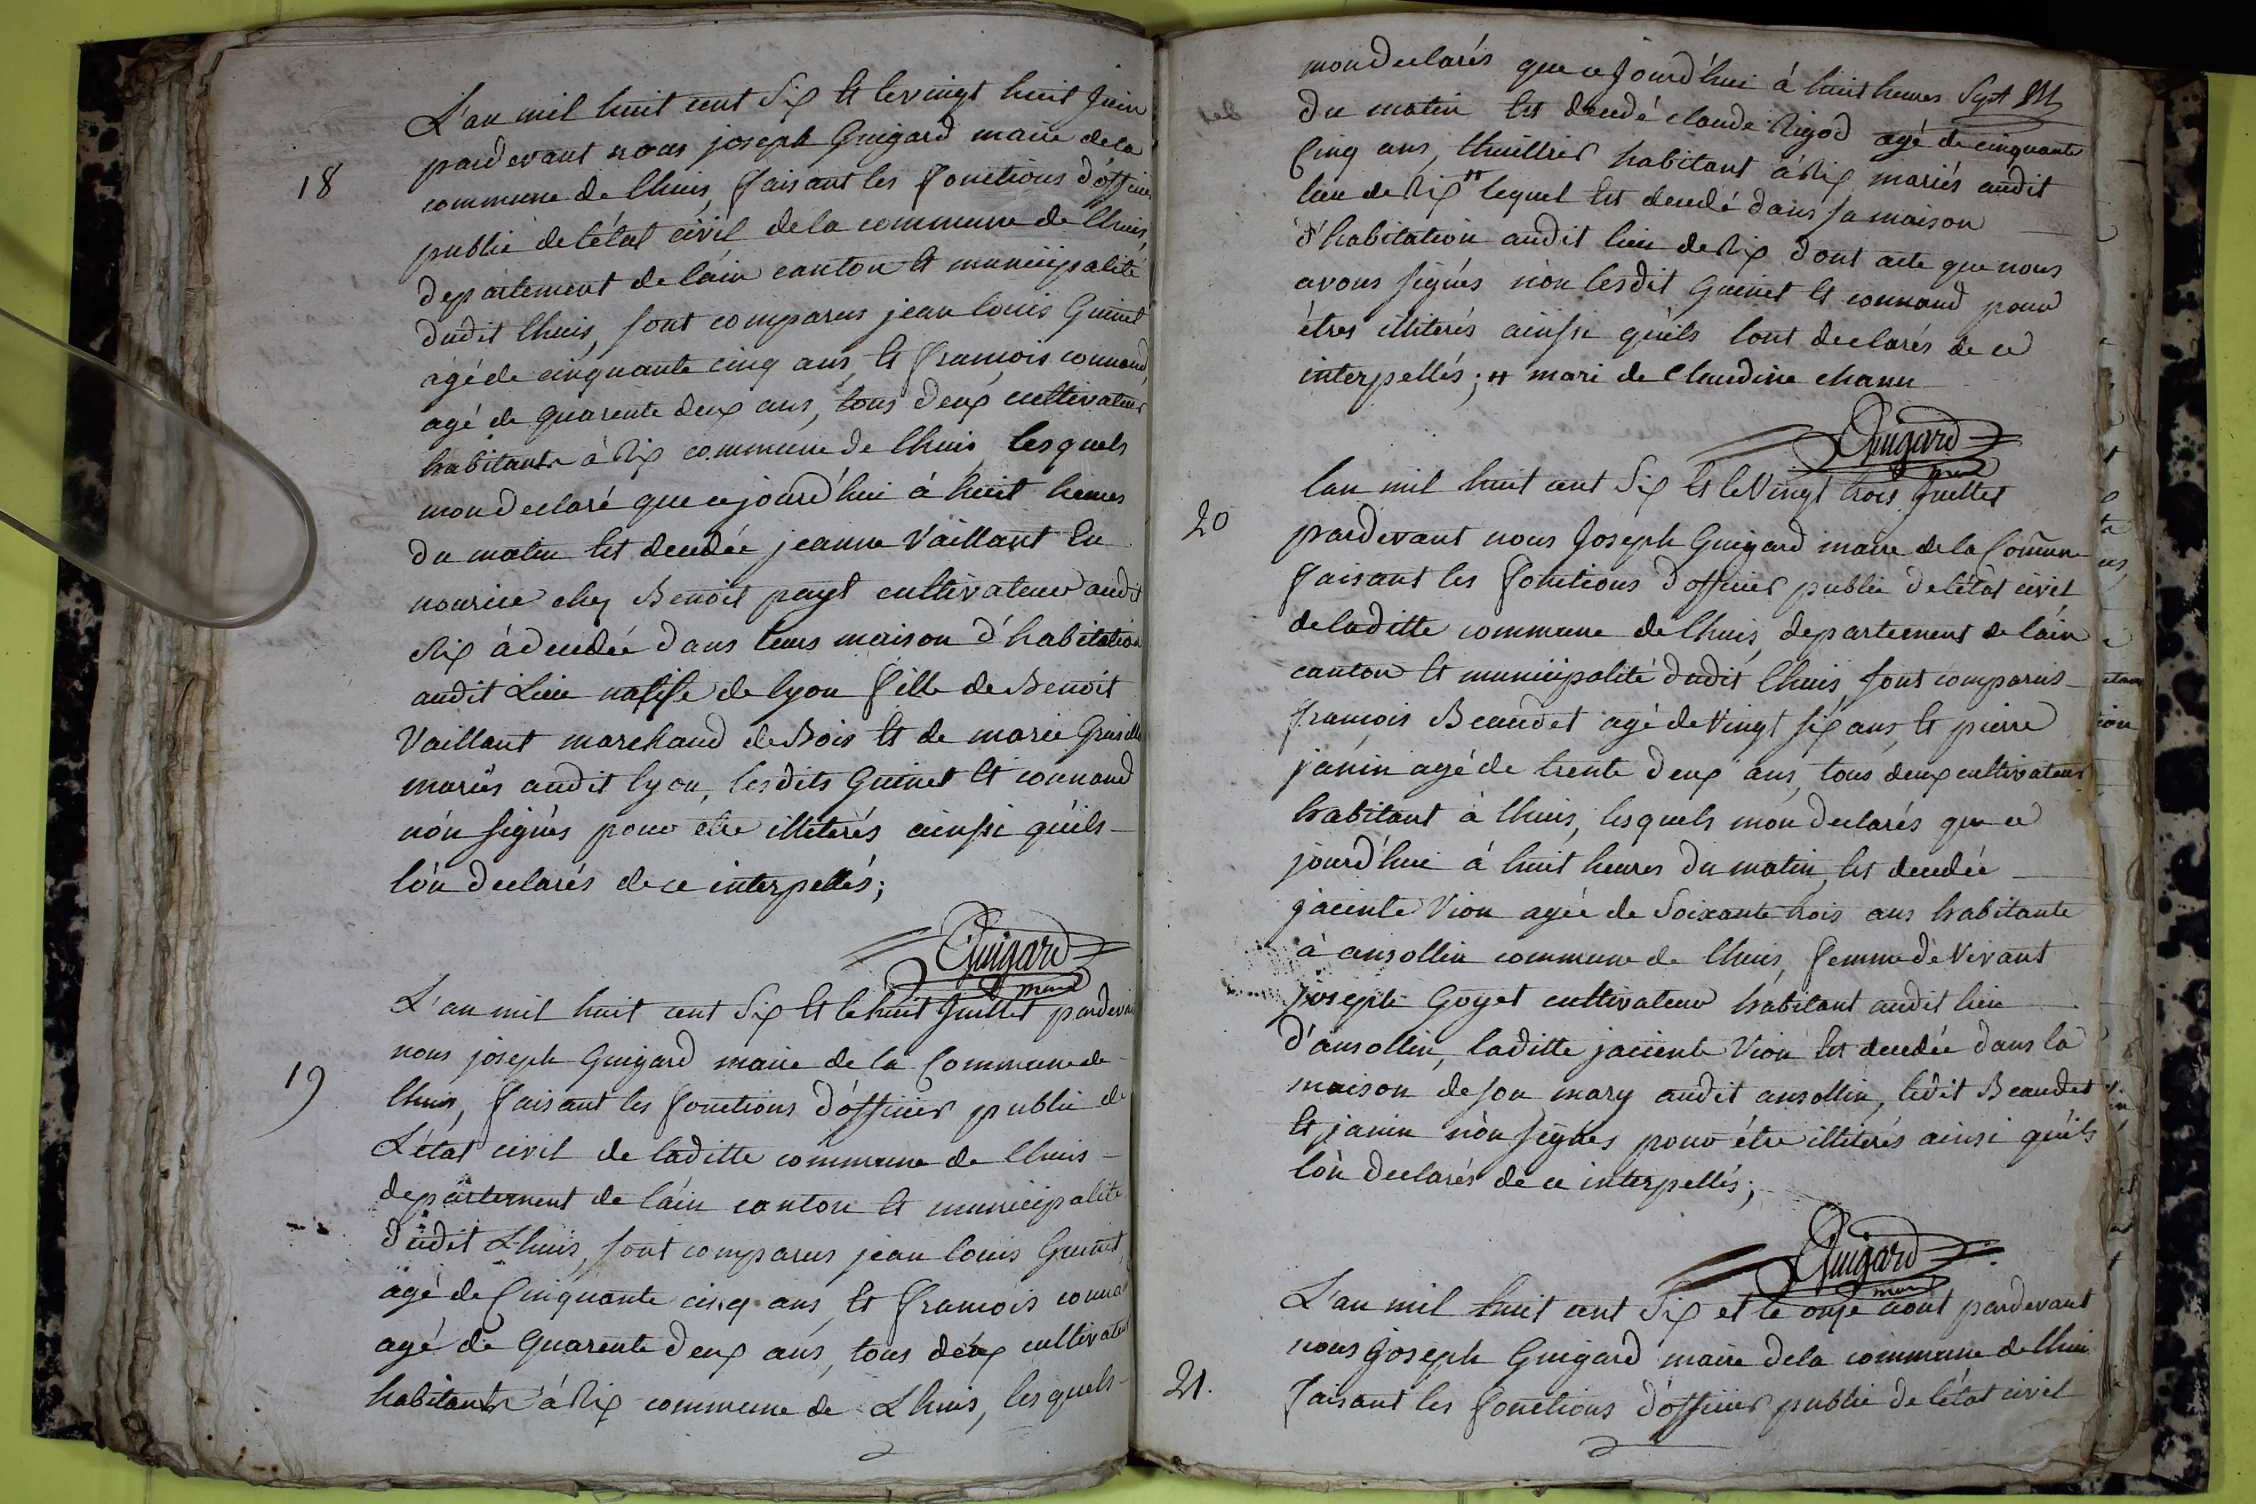 18
L'an mil huit cent Six Et le vingt huit Juin
pardevant nous joseph Guigard maire de la
commune de lhuis, faisant les fonctions d'officier
public de l'état civil de la commune de lhuis,
departement de l'ain canton Et municipalité
dudit lhuis, sont comparus jean louis Guinet
agé de cinquante cinq ans, Et francois connand,
agé de quarente deux ans, tous deux cultivateur
habitants à Rix commune de lhuis, lesquels
mon declaré que ce jourd'hui à huit heures
du matin Est decedée jeanne Vaillant En
nourice chez Benoit payt cultivateur audit
Rix à decedée dans leurs maison d'habitation
audit Lieu natife de lyon fille de Benoit
Vaillant marchand de Bois Et de marie
mariés audit lyon, lesdits Guinet Et connand
nón signés pour etre illiterés ainsi qu'ils
lón declarés de ce interpellés;
Guigard
maire
19
L'an mil huit cent Six Et le huit Juillet pardevant
nous joseph Guigard maire de la Commune de
lhuis, faisant les fonctions d'officier public de
L'état civil de laditte commune de lhuis
departement de l'ain canton Et municipalité
dudit Lhuis, sont comparus jean louis Guinet,
agé de Cinquante cinq ans, Et francois connand
agé de Quarente deux ans, tous deux cultivateur
habitants à Rix commune de Lhuis, lesquels
mon declarés que ce Jourd'hui à huit heures Sept
du matin Est decedé claude Rigod agé de cinquante
Cinq ans, thuillier habitant à Rix mariés audit
lieu de Rix # lequel Est decedé dans sa maison
d'habitation audit lieu de Rix dont acte que nous
avons signés nón lesdit Guinet Et connand pour
étres illiterés ainssi qu'ils lont declarés de ce
interpellés; # mari de Claudine chanu
Guigard
maire
20
lan mil huit cent Six Et le Vingt trois Juillet
pardevant nous Joseph Guigard maire de la Comune
faisant les fonctions d'officier public de l'état civil
de laditte commune de lhuis, departement de l'ain
canton Et municipalité dudit lhuis, sont comparus
francois Beaudet agé de Vingt six ans, Et pierre
janin agé de trente deux ans, tous deux cultivateurs
habitant à lhuis, lesquels mon declarés que ce
jourd'hui à huit heures du matin, Est decedée
jacinte Vion agée de Soixante trois ans habitante
à ansollin commune de lhuis, femme de Vivant
joseph Goyet cultivateur habitant audit lieu
d'ansollin, laditte jaciente Vion Est decedée dans la
maison de son mary audit ansollin, ledit Beaudet
Et janin nón signés pour étre illiterés ainsi qu'ils
lón declarés de ce interpellés;
Guigard
maire
21.
L'an mil huit cent Six et le onze aout pardevant
nous Joseph Guigard maire de la commune de lhuis
faisant les fonctions d'officier public de l'état civil